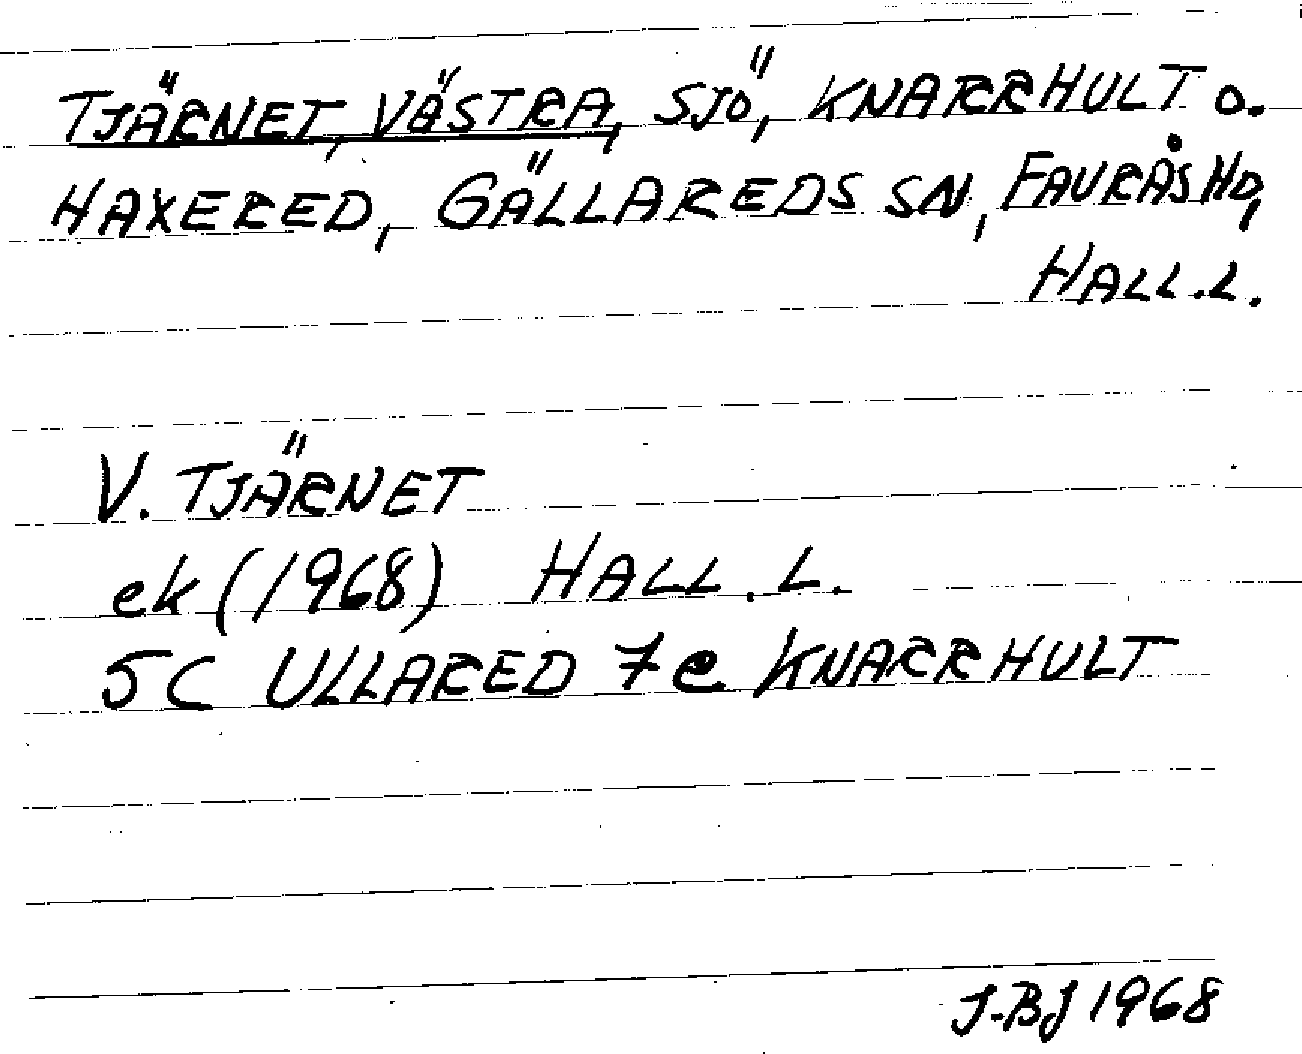 TJÄRNET, VÄSTRA, SJÖ, KNARRHULT o.
HAXERED, GÄLLAREDS SN, FAURÅS HD,
HALL.L.
V. TJÄRNET
ek (1968) HALL.L.
5C ULLARED 7e KNARRHULT
J-BJ 1968